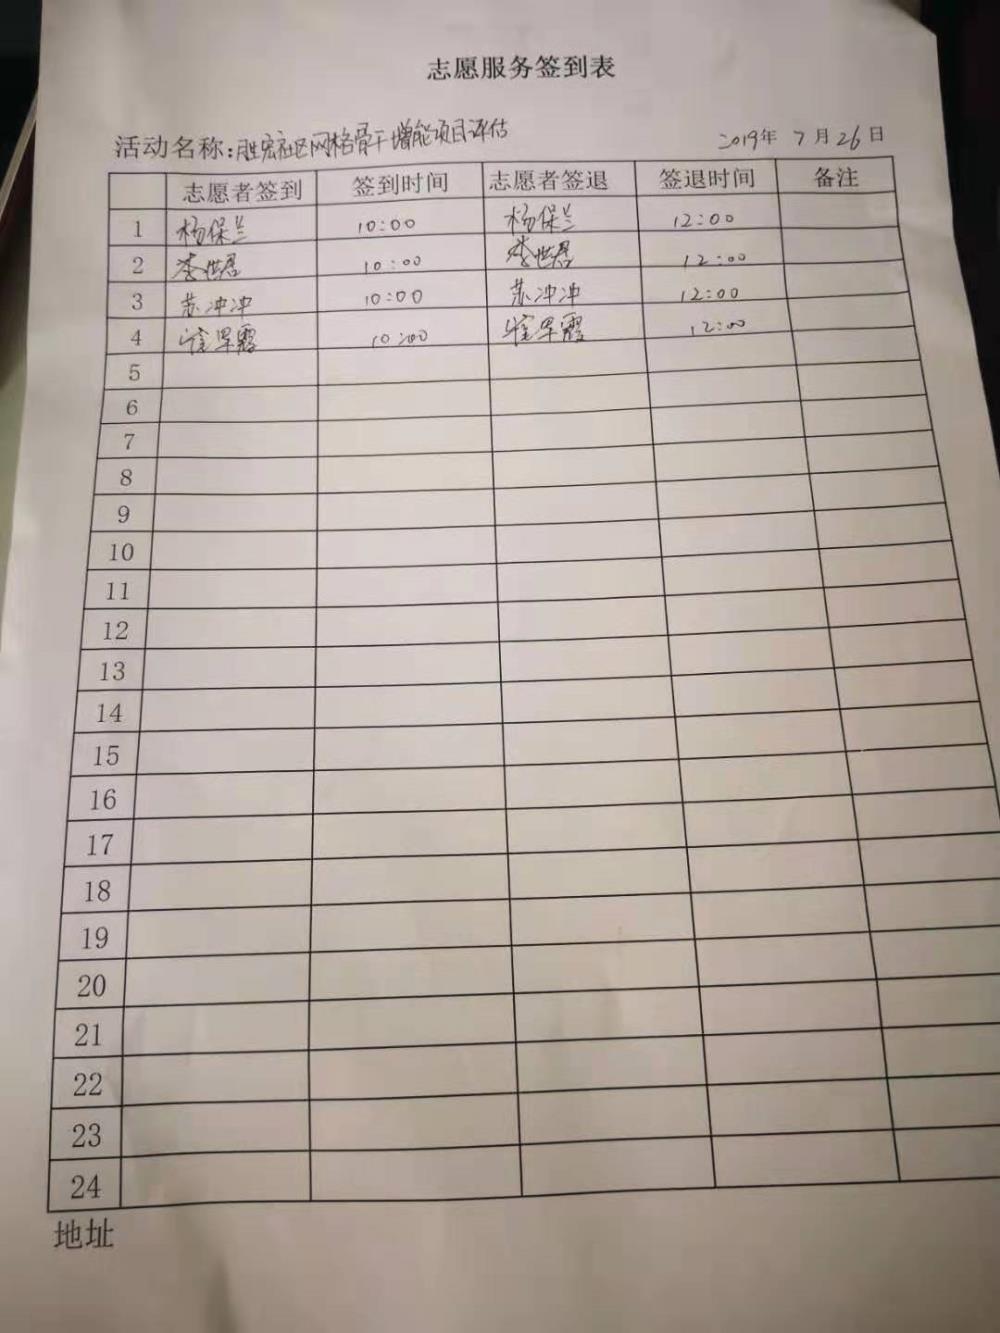 志愿服务签到表
活动名称:胜宏社区网格骨干增能项目评估 2019年 7月26日
志愿者签到 签到时间 志愿者签退 签退时间 备注
1 杨保兰 10:00 杨保兰 12:00
2 李世君 10:00 李世君 12:00
3 苏冲冲 10:00 苏冲冲 12:00
4 10:00 12:00
5
6
7
8
9
10
11
12
13
14
15
16
17
18
19
20
21
22
23
24
地址